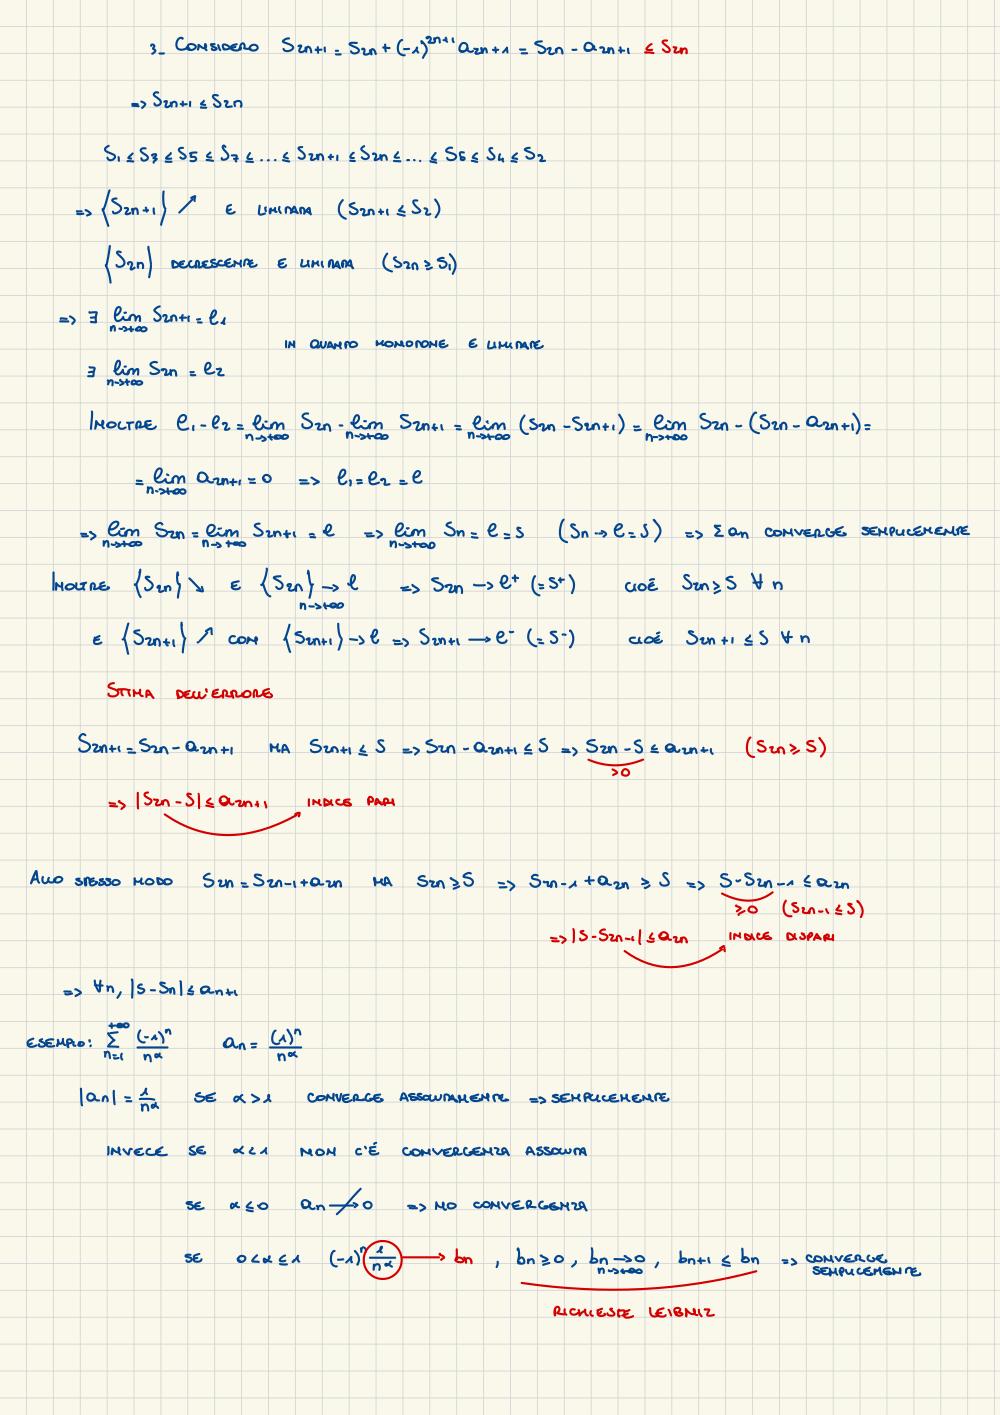 3_ CONSIDERO S2n+1 = S2n + (-1)^2n+1 a2n+1 = S2n - a2n+1 ≤ S2n
=> S2n+1 ≤ S2n
S1 ≤ S3 ≤ S5 ≤ S7 ≤ ... ≤ S2n+1 ≤ S2n ≤ ... ≤ S6 ≤ S4 ≤ S2
=> {S2n+1} ↗ E LIMITATA (S2n+1 ≤ S2)
{S2n} DECRESCENTE E LIMITATA (S2n ≥ S1)
=> ∃ lim n->+∞ S2n+1 = l1
IN QUANTO MONOTONE E LIMITATE
∃ lim n->+∞ S2n = l2
INOLTRE l1 - l2 = lim n->+∞ S2n - lim n->+∞ S2n+1 = lim n->+∞ (S2n - S2n+1) = lim n->+∞ S2n - (S2n - a2n+1) =
= lim n->+∞ a2n+1 = 0 => l1 = l2 = l
=> lim n->+∞ S2n = lim n->+∞ S2n+1 = l => lim n->+∞ Sn = l = S (Sn -> l = S) => Σ an CONVERGE SEMPLICEMENTE
INOLTRE {S2n} ↘ E {S2n} -> l n->+∞ => S2n -> l+ (= S+) CIOÉ S2n ≥ S ∀ n
E {S2n+1} ↗ CON {S2n+1} -> l => S2n+1 -> l- (= S-) CIOÉ S2n+1 ≤ S ∀ n
STIMA DELL'ERRORE
S2n+1 = S2n - a2n+1 MA S2n+1 ≤ S => S2n - a2n+1 ≤ S => S2n - S ≤ a2n+1 (S2n ≥ S)
>0
=> |S2n - S| ≤ a2n+1 INDICE PARI
ALLO STESSO MODO S2n = S2n-1 + a2n MA S2n ≥ S => S2n-1 + a2n ≥ S => S - S2n-1 ≤ a2n
≥0 (S2n-1 ≤ S)
=> |S - S2n-1| ≤ a2n INDICE DISPARI
=> ∀n, |S - Sn| ≤ an+1
ESEMPIO: Σ n=1 +∞ (-1)^n / n^α an = (1)^n / n^α
|an| = 1 / n^α SE α > 1 CONVERGE ASSOLUTAMENTE => SEMPLICEMENTE
INVECE SE α < 1 NON C'É CONVERGENZA ASSOLUTA
SE α ≤ 0 an ↛ 0 => NO CONVERGENZA
SE 0 < α ≤ 1 (-1)^n 1 / n^α -> bn , bn ≥ 0 , bn -> 0 n->+∞ , bn+1 ≤ bn => CONVERGE
SEMPLICEMENTE
RICHIESTE LEIBNIZ